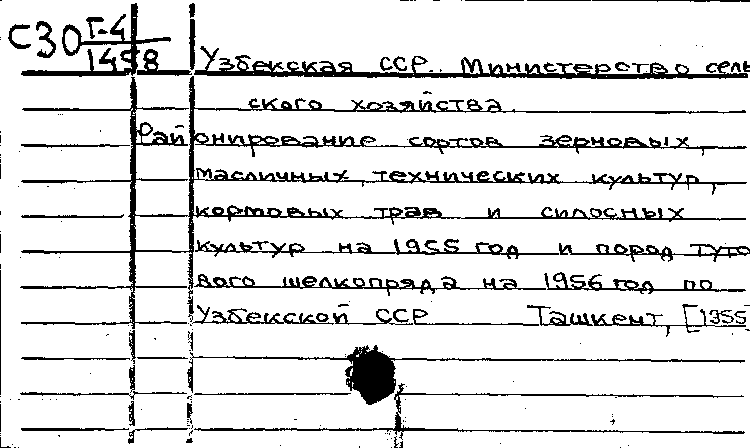 С30 Г-4
1458
Узбекская ССР. Министерство сель
ского хозяйства.
Районирование сортов зерновых,
масличных, технических культур,
кормовых трав и силосных
культур на 1955 год и пород туто
вого шелкопряда на 1956 год по
Узбекской ССР Ташкент, [1955